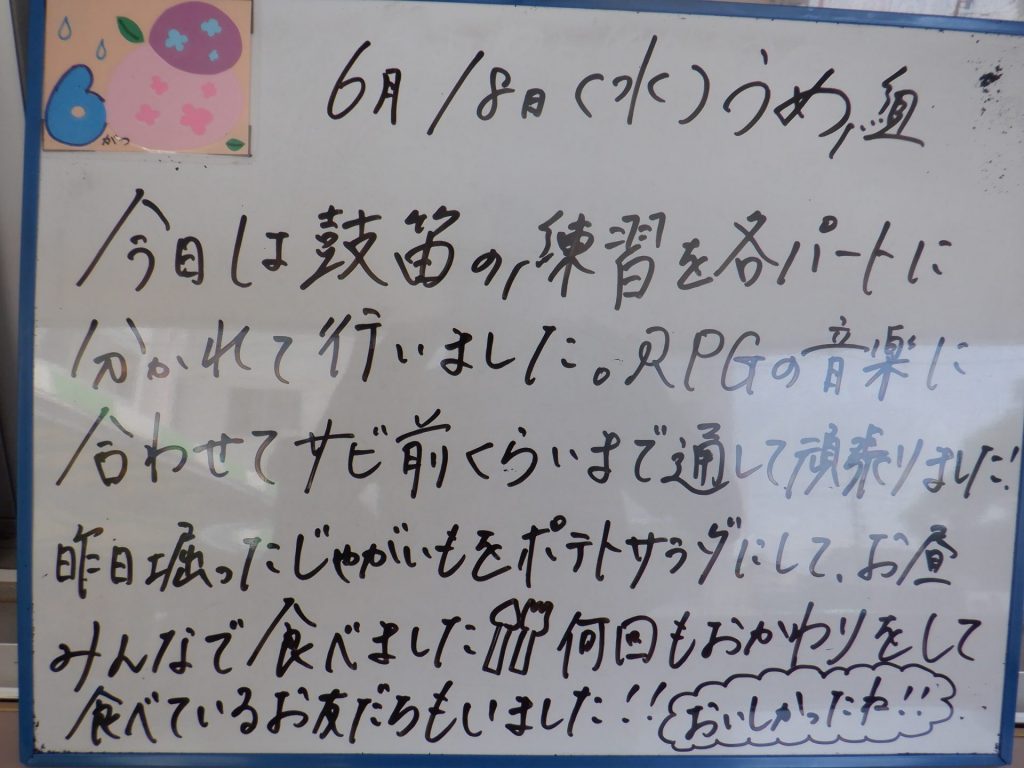 6がつ
6月18日(水)うめ組
今日は鼓笛の練習を各パートに
分かれて行いました。RPGの音楽に
合わせてサビ前くらいまで通して頑張りました!
昨日掘ったじゃがいもをポテトサラダにして、お昼
みんなで食べました 何回もおかわりをして
食べているお友だちもいました!! おいしかったね!!